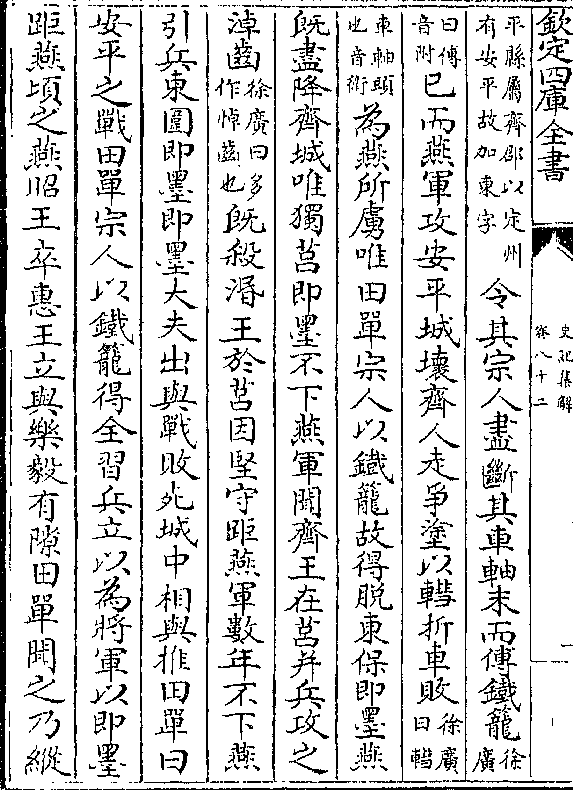 欽定四庫全書
史記集解
卷八十二
一
平縣屬齊郡以定州
有安平故加東字
令其宗人盡斷其車軸末而傅鐵籠
徐廣
曰傅
音附
已而燕軍攻安平城壞齊人走爭塗以轊折車敗
徐廣
曰轊
車軸頭
也音衛
為燕所虜唯田單宗人以鐵籠故得脫東保即墨燕
既盡降齊城唯獨莒即墨不下燕軍聞齊王在莒并兵攻之
淖齒
徐廣曰多
作悼齒也
既殺湣王於莒因堅守距燕軍數年不下燕
引兵東圍即墨即墨大夫出與戰敗死城中相與推田單曰
安平之戰田單宗人以鐵籠得全習兵立以為將軍以即墨
距燕頃之燕昭王卒惠王立與樂毅有隙田單聞之乃縱